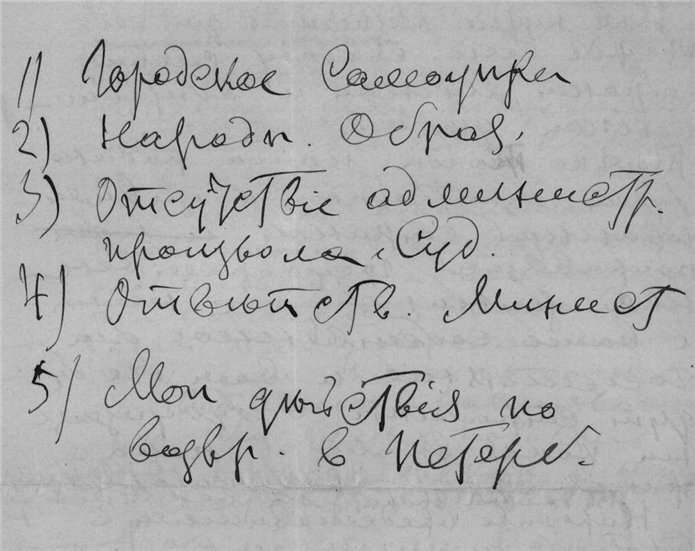 1) Городское Самоупр
2) Народн. Образ.
3) Отсутствіе администр.
произвола. Суд.
4) Отвѣтств. Минист
5) Мои дѣйствія по
возвр. в Петерб.